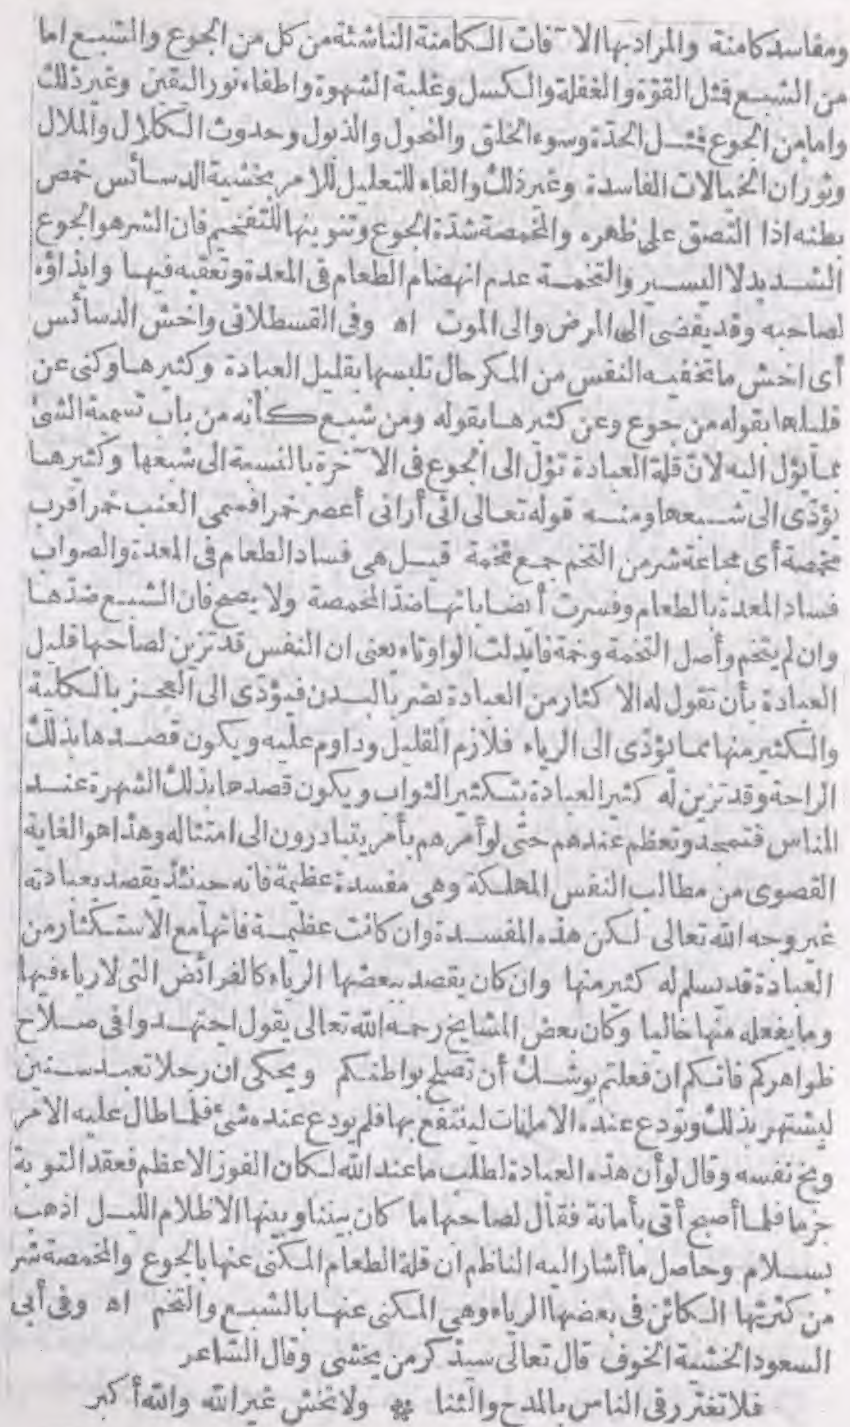 ومفاسد كامنة والمراد بها الآفات الكامنة الناشئة من كل من الجوع والشبع اما
من الشبع فمثل القوة والغفلة والكسل وغلبة الشهوة واطفاء نور اليقين وغير ذلك
واما من الجوع فمثل الحدة وسوء الخلق والنحول والذبول وحدوث الكلال والملال
وثوران الخيالات الفاسدة وغير ذلك والفاء للتعليل للامر بخشية الدسائس خمص
بطنه اذا التصق على ظهره والمخمصة شدة الجوع وتنوينها للتفخيم فان الشر هو الجوع
الشديد لا اليسير والتخمة عدم انهضام الطعام فى المعدة وتعقبه فيها وايذاؤه
لصاحبه وقد يفضى الى المرض والى الموت اه وفى القسطلانى واخش الدسائس
أى اخش ما تخفيه النفس من المكر حال تلبسها بقليل العبادة وكثيرها وكنى عن
قليلها بقوله من جوع وعن كثيرها بقوله ومن شبع كأنه من باب تسمية الشئ
بما يؤل اليه لان قلة العبادة تؤل الى الجوع فى الآخرة بالنسبة الى شبعها وكثيرها
يؤدى الى شبعها ومنه قوله تعالى انى أرانى أعصر خمرا فسمى العنب خمرا فرب
مخمصة أى مجاعة شر من التخم جمع تخمة قيل هى فساد الطعام فى المعدة والصواب
فساد المعدة بالطعام وفسرت أيضا بانها ضد المخمصة ولا يصح فان الشبع ضدها
وان لم يتخم وأصل التخمة وخمة فابدلت الواو تاء يعنى ان النفس قد تزين لصاحبها قليل
العبادة بأن تقول له الاكثار من العبادة يضر بالبدن فيؤدى الى العجز بالكلية
والكثير منها مما يؤدى الى الرياء فلازم القليل وداوم عليه ويكون قصدها بذلك
الراحة وقد تزين له كثير العبادة بتكثير الثواب ويكون قصدها بذلك الشهرة عند
الناس فتمجد وتعظم عندهم حتى لو أمرهم بأمر يتبادرون الى امتثاله وهذا هو الغاية
القصوى من مطالب النفس المهلكة وهى مفسدة عظيمة فانه حينئذ يقصد بعبادته
غير وجه الله تعالى لكن هذه المفسدة وان كانت عظيمة فانها مع الاستكثار من
العبادة قد يسلم له كثير منها وان كان يقصد ببعضها الرياء كالفرائض التى لا رياء فيها
وما يفعله منها خاليا وكان بعض المشايخ رحمه الله تعالى يقول اجتهدوا فى صلاح
ظواهركم فانكم ان فعلتم يوشك أن تصلح بواطنكم ويحكى ان رجلا تعبد سنين
ليشتهر بذلك وتودع عنده الامانات لينتفع بها فلم يودع عنده شئ فلما طال عليه الامر
وبخ نفسه وقال لو أن هذه العبادة لطلب ما عند الله لكان الفوز الاعظم فعقد التوبة
جزما فلما أصبح أتى بأمانة فقال لصاحبها ما كان بيننا وبينها الا ظلام الليل اذهب
بسلام وحاصل ما أشار اليه الناظم ان قلة الطعام المكنى عنها بالجوع والمخمصة شر
من كثرتها الكائن فى بعضها الرياء وهى المكنى عنها بالشبع والتخم اه وفى أبى
السعود الخشية الخوف قال تعالى سيذكر من يخشى وقال الشاعر
فلا تغترر فى الناس بالمدح والثنا * ولا تخش غير الله والله أكبر